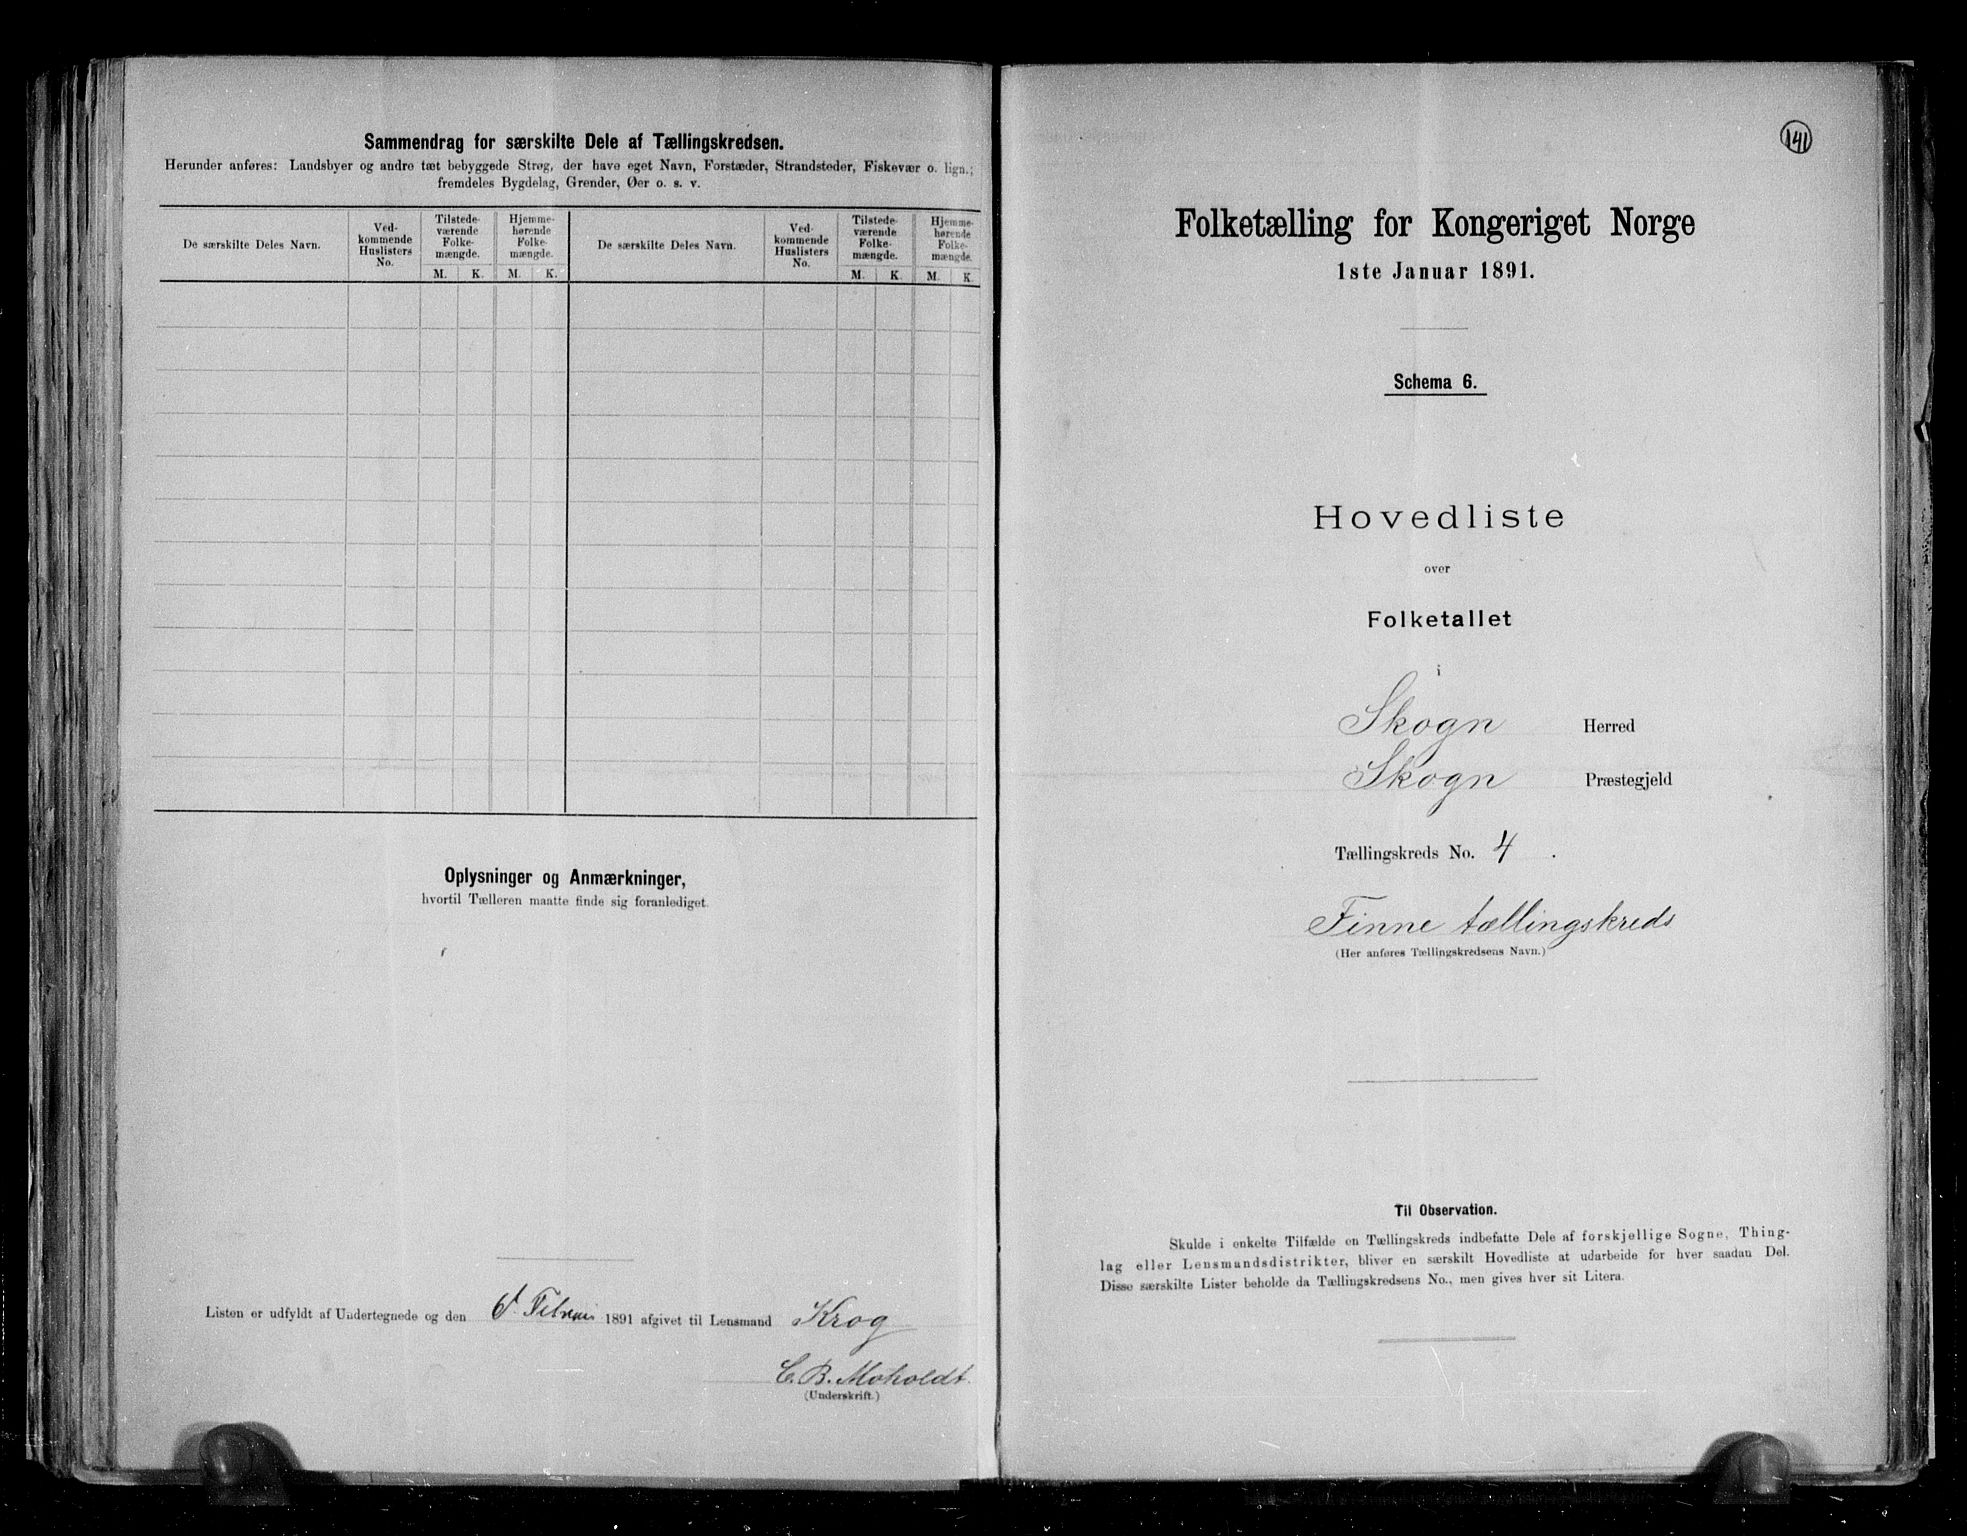 Sammendrag for særskilte Dele af Tællingskredsen.
Herunder anføres: Landsbyer og andre tæt bebyggede Strøg, der have eget Navn, Forstæder, Strandsteder, Fiskevær o. lign.;
fremdeles Bygdelag, Grender, Øer o. s. v.
De særskilte Deles Navn.
Ved-
kommende
Huslisters
No.
Tilstede-
værende
Folke-
mængde.
M. K.
Hjemme-
hørende
Folke-
mængde.
M. K.
De særskilte Deles Navn.
Ved-
kommende
Huslisters
No.
Tilstede-
værende
Folke-
mængde.
M. K.
Hjemme-
hørende
Folke-
mængde.
M. K.
Oplysninger og Anmærkninger,
hvortil Tælleren maatte finde sig foranlediget.
Listen er udfyldt af Undertegnede og den 1891 afgivet til Lensmand Krog
C. B. Moholdt.
(Underskrift.)
141
Folketælling for Kongeriget Norge
1ste Januar 1891.
Schema 6.
Hovedliste
over
Folketallet
i
Skogn Herred
Skogn Præstegjeld
Tællingskreds No. 4.
Finne tællingskreds
(Her anføres Tællingskredsens Navn.)
Til Observation.
Skulde i enkelte Tilfælde en Tællingskreds indbefatte Dele af forskjellige Sogne, Thing-
lag eller Lensmandsdistrikter, bliver en særskilt Hovedliste at udarbeide for hver saadan Del.
Disse særskilte Lister beholde da Tællingskredsens No., men gives hver sit Litera.